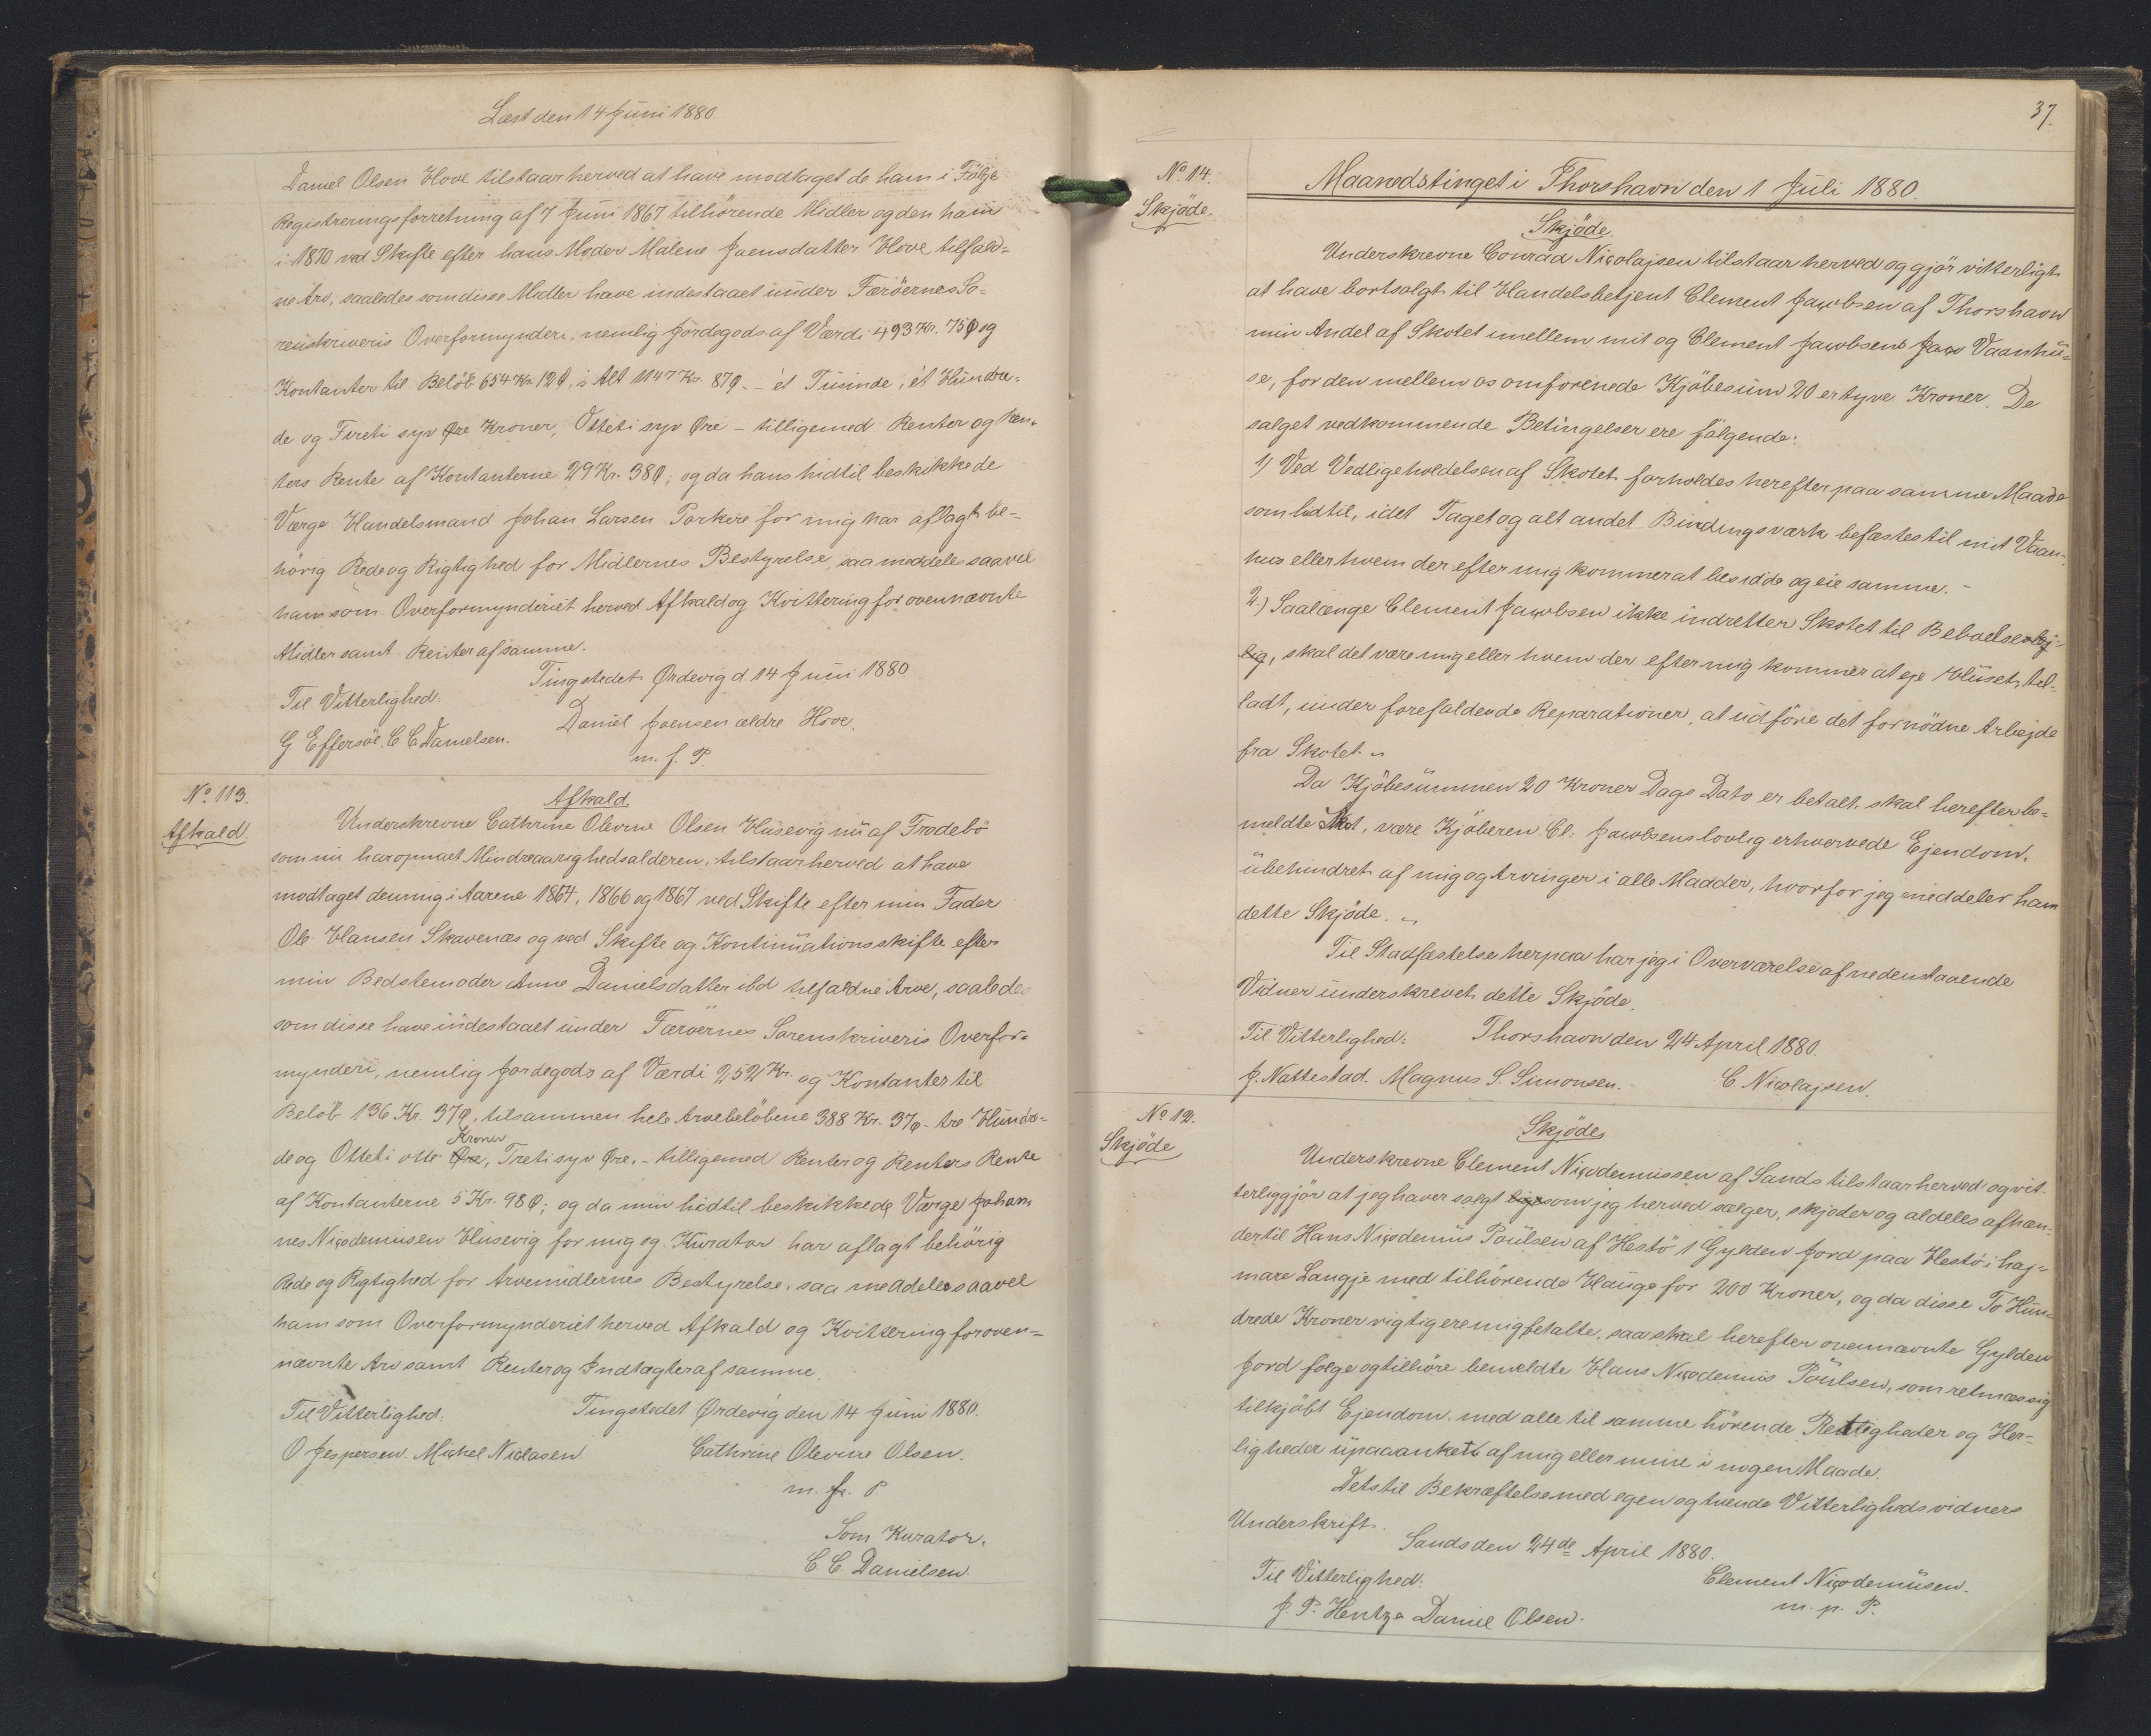 Læst den 14 Juni 1880.
Daniel Olsen Hove tilstaar herved at have modtaget de ham i Følge
Registreringsforretning af 7 Juni 1867 tilhörende Midler og den ham
i 1870 ved Skifte efter hans Moder Malene Joensdatter Hove tilfald=
ne Arv, saaledes som disse Midler have indestaaet under Færöernes So=
renskriveris Overformynderi, nemlig Jordegods af Værdi 493 Kr. 75 Ø og
Kontanter til Beløb 654 Kr. 12 Ø, i Alt 1147 Kr. 87 Ø. – ét Tusinde, ét Hundre=
de og Fireti syv Øre Kroner, Otteti syv Øre – tilligemed Renter og Ren=
ters Rente af Kontanterne 29 Kr. 38 Ø; og da hans hidtil beskikkede
Værge Handelsmand Johan Larsen Porkere for mig har aflagt be=
hörig Rede og Rigtighed for Midlernes Bestyrelse, saa meddeles saavel
ham som Overformynderiet herved Afkald og Kvittering for ovennævnte
Midler samt Renter af samme.
Tingstedet Ørdevig d. 14 Juni 1880.
Til Vitterlighed:
Daniel Joensen ældre Hove.
G. Effersöe. C C Danielsen.
m. f. P.
No. 113.
Afkald.
Afkald.
Underskrevne Cathrine Olevine Olsen Husevig nu af Trodebö
som nu har opnaaet Mindreaarighedsalderen, tilstaar herved at have
modtaget den mig i Aarene 1864, 1866 og 1867 ved Skifte efter min Fader
Ole Hansen Skavenæs og ved Skifte og Kontinuationsskifte efter
min Bedstemoder Anne Danielsdatter ibd tilfaldne Arve, saaledes
som disse have indestaaet under Færöernes Sorenskriveris Overfor=
mynderi, nemlig Jordegods af Værdi 252 Kr. og Kontanter til
Belöb 136 Kr. 37 Ø, tilsammen hele Arvebelöbene 388 Kr. 37 Ø – tre Hundre=
de og Otteti otte Øre Kroner, Treti syv Øre, – tilligemed Renter og Renters Rente
af Kontanterne 5 Kr. 98 Ø; og da min hidtil beskikkede Værge Johan=
nes Nicodemusen Husevig for mig og Kurator har aflagt behörig
Rede og Rigtighed for Arvemidlernes Bestyrelse, saa meddeles saavel
ham som Overformynderiet herved Afkald og Kvittering for oven=
nævnte Arv samt Renter og Indtægter af samme.
Til Vitterlighed:
Tingstedet Ørdevig den 14 Juni 1880.
O. Jespersen. Mickel Niclasen
Cathrine Olevine Olsen.
m. f. P
Som Kurator.
C C. Danielsen
37.
No. 14.
Skjöde.
Maanedstinget i Thorshavn den 1 Juli 1880.
Skjöde.
Underskrevne Conrad Nicolajsen tilstaar herved og gjör vitterligt
at have bortsolgt til Handelsbetjent Clement Jacobsen af Thorshavn
min Andel af Skotet imellem mit og Clement Jacobsens Vaanhu=
se, for den mellem os omforenede Kjöbesum 20 er tyve Kroner. De
salget vedkommende Betingelser ere fölgende:
1) Ved Vedligeholdelsen af Skotet forholdes herefter paa samme Maade
som hidtil, idet Taget og alt andet Bindingsværk befæstes til mit Vaan=
hus eller hvem der efter mig kommer at besidde og eie samme. –
2.) Saalænge Clement Jacobsen ikke indretter Skotet til Beboelseslej=
lig, skal det være mig eller hvem der efter mig kommer at eje Huset, til=
ladt, under forefaldende Reparationer, at udföre det fornödne Arbejde
fra Skotet.
Da Kjöbesummen 20 Kroner Dags Dato er betalt, skal herefter be=
meldte Skot, være Kjöberen Cl: Jacobsens lovlig erhvervede Ejendom,
ubehindret af mig og Arvinger i alle Maader, hvorfor jeg meddeler ham
dette Skjöde.
Til Stadfæstelse herpaa har jeg i Overværelse af nedenstaaende
Vidner underskrevet dette Skjöde.
Til Vitterlighed:
Thorshavn den 24 April 1880.
J. Nattestad. Magnus S. Simonsen.
C. Nicolajsen.
No. 12.
Skjöde
Skjöde
Underskrevne Clement Nicodemussen af Sands tilstaar herved og vit=
terliggjör at jeg haver solgt ligesom jeg herved sælger, skjøder og aldeles afhæn=
der til Hans Nicodemus Poulsen af Hestö 1 Gylden Jord paa Hestö i haj=
mare Langje med tilhörende Hauge for 200 Kroner, og da disse To Hun=
drede Kroner rigtig ere mig betalte, saa skal herefter ovennævnte Gylden
Jord følge og tilhöre bemeldte Hans Nicodemus Poulsen, som retmæssig
tilkjöbt Ejendom, med alle til samme hörende Rettigheder og Her=
ligheder upaaanket af mig eller mine i nogen Maade.
Dets til Bekræftelse med egen og tvende Vitterlighedsvidners
Underskrift.
Sands den 24de April 1880.
Til Vitterlighed:
Clement Nicodemüsen.
J. P. Hentze Daniel Olsen.
m. p. P.